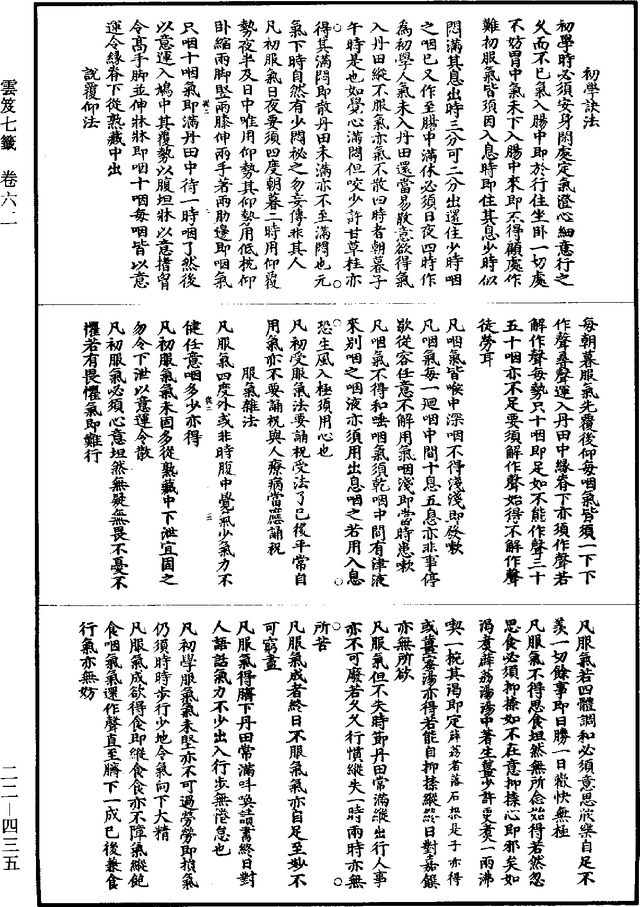 初學訣法
初學時必須安身閑處定氣澄心細意行之
久而不已氣入腸中即於行住坐卧一切處
不妨胃中氣未下入腸中來即不得顧處作
難初服氣皆須因入息時即住其息少時似
悶滿其息出時三分可二分出還住少時咽
之咽已又作至腸中滿休必須日夜四時作
為初學人氣未入丹田還當易散意欲得氣
入丹田縱不服氣亦氣不散四時者朝暮子
午時是也如覺心滿悶但咬少許甘草桂亦
得其滿悶即散丹田未滿亦不至滿悶也元
氣下時自然有少悶祕之勿妄傳非其人
凡初服氣日夜要須四度朝暮二時用仰覆
勢夜半及日中唯用仰勢其仰勢用低枕仰
卧縮兩脚竪兩膝伸兩手著兩肋邊即咽氣
只咽十咽氣即滿丹田中待一時咽了然後
以意運入鳩中其覆勢以腹坦牀以意揩胷
令高手脚並伸牀牀即咽十咽每咽皆以意
運令緣脊下從熟藏中出
說覆仰法
雲笈七籤 卷六二
每朝暮服氣先覆後仰每咽氣皆須一下下
作聲尋聲運入丹田中緣脊下亦須作聲若
解作聲每勢只十咽即足如不能作聲三十
五十咽亦不足要須解作聲始得不解作聲
徒勞耳
凡咽氣皆喉中深咽不得淺淺即發嗽
凡咽氣每一迴咽中間十息五息亦非事停
歇從容任意不解用氣咽淺即當時患嗽
凡咽氣不得和唾咽氣須乾咽中間有津液
來別咽之咽液亦須用出息咽之若用入息
恐生風入極須用心也
凡初受服氣法要誦祝受法了已後平常自
用氣亦不要誦祝與人療病當應誦祝
服氣雜法
凡服氣四度外或非時腹中覺氣少氣力不
健任意咽多少亦得
凡初服氣氣未固多從熟藏中下泄宜固之
勿令下泄以意運令散
凡初服氣必須心意坦然無疑無畏不憂不
懼若有畏懼氣即難行
凡服氣若四體調和必須意思悅樂自足不
羨一切餘事即日勝一日歡快無極
凡服氣不得思食坦然無所念始得若然忽
思食必須抑捺如不在意抑捺心即邪矣如
渴煮薜荔湯湯中著生薑少許更煮一兩沸
喫一梡其渴即定薜荔者落石根是子亦得
或薑蜜湯亦得若能自抑捺縱終日對嘉饌
亦無所欲
凡服氣但不失時節丹田常滿縱出行人事
亦不可廢若久久行慣縱失一時兩時亦無
所苦
凡服氣成者終日不服氣氣亦自足至妙不
可窮盡
凡服氣得臍下丹田常滿叫喚讀書終日對
人語話氣力不少出入行步無倦怠也
凡初學服氣氣未堅亦不可過勞勞即損氣
仍須時時步行少地令氣向下大精
凡服氣成欲得食即縱食食亦不障氣縱飽
食咽氣氣運作聲直至臍下一成已後兼食
行氣亦無妨
二二—四三五